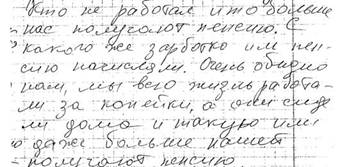 Кто не работал и то больше
нас получают пенсию. С
какого же зарботка им пен-
сию начисляли. Очень обидно
нам, мы всю жизнь работа-
ли за копейки, а они сиде
ли дома и такую или
даже больше нашей
получают пенсию